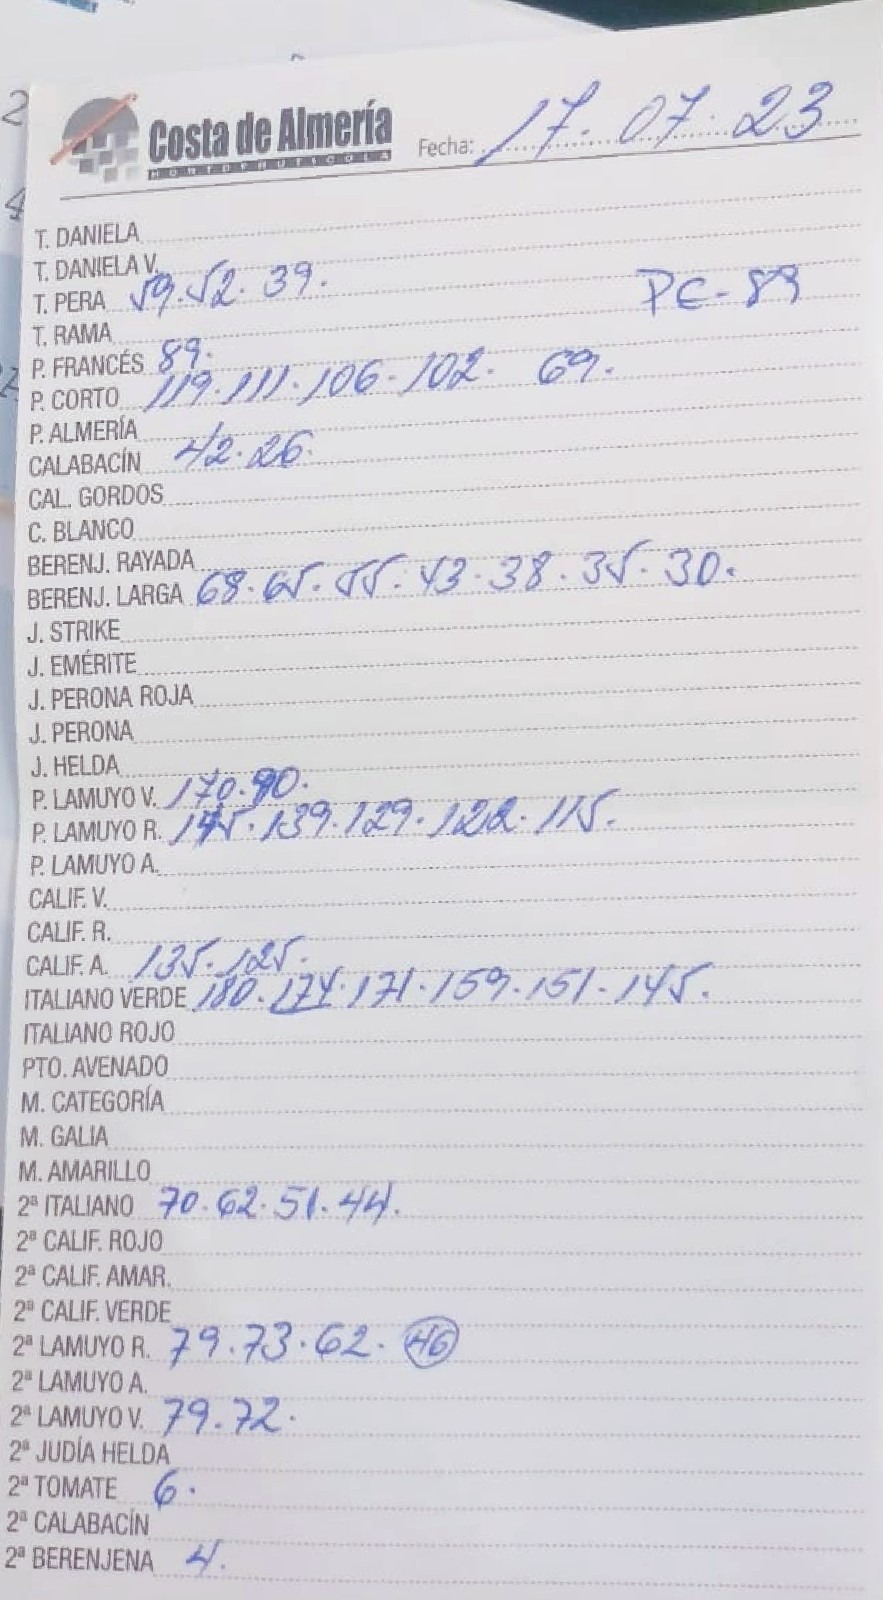 Costa de Almería
HORTOFRUTICOLA
Fecha: 17.07.23
T. DANIELA
T. DANIELA V.
T. PERA 59.52.39.
PC-89
T. RAMA
P. FRANCÉS 89.
P. CORTO 119.111.106.102. 69.
P. ALMERÍA
CALABACÍN 42.26.
CAL. GORDOS
C. BLANCO
BERENJ. RAYADA
BERENJ. LARGA 68.65.55.43.38.35.30.
J. STRIKE
J. EMÉRITE
J. PERONA ROJA
J. PERONA
J. HELDA
P. LAMUYO V. 170.90.
P. LAMUYO R. 145.139.129.122.115.
P. LAMUYO A.
CALIF. V.
CALIF. R.
CALIF. A. 135.125.
ITALIANO VERDE 180.174.171.159.151.145.
ITALIANO ROJO
PTO. AVENADO
M. CATEGORÍA
M. GALIA
M. AMARILLO
2ª ITALIANO 70.62.51.44.
2ª CALIF. ROJO
2ª CALIF. AMAR.
2ª CALIF. VERDE
2ª LAMUYO R. 79.73.62. 46
2ª LAMUYO A.
2ª LAMUYO V. 79.72.
2ª JUDÍA HELDA
2ª TOMATE 6.
2ª CALABACÍN
2ª BERENJENA 4.